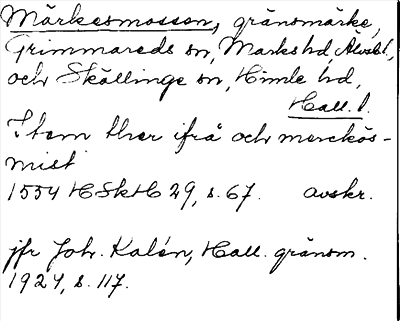 Märkesmossen, gränsmärke,
Grimmareds sn, Marks hd, Älvsb l,
och Skällinge sn, Himle hd,
Hall. l.
Item ther ifrå och merckös-
mist
1554 HSkH 29, s. 67. avskr.
jfr Joh. Kalén, Hall. gränsm.
1924, s. 117.